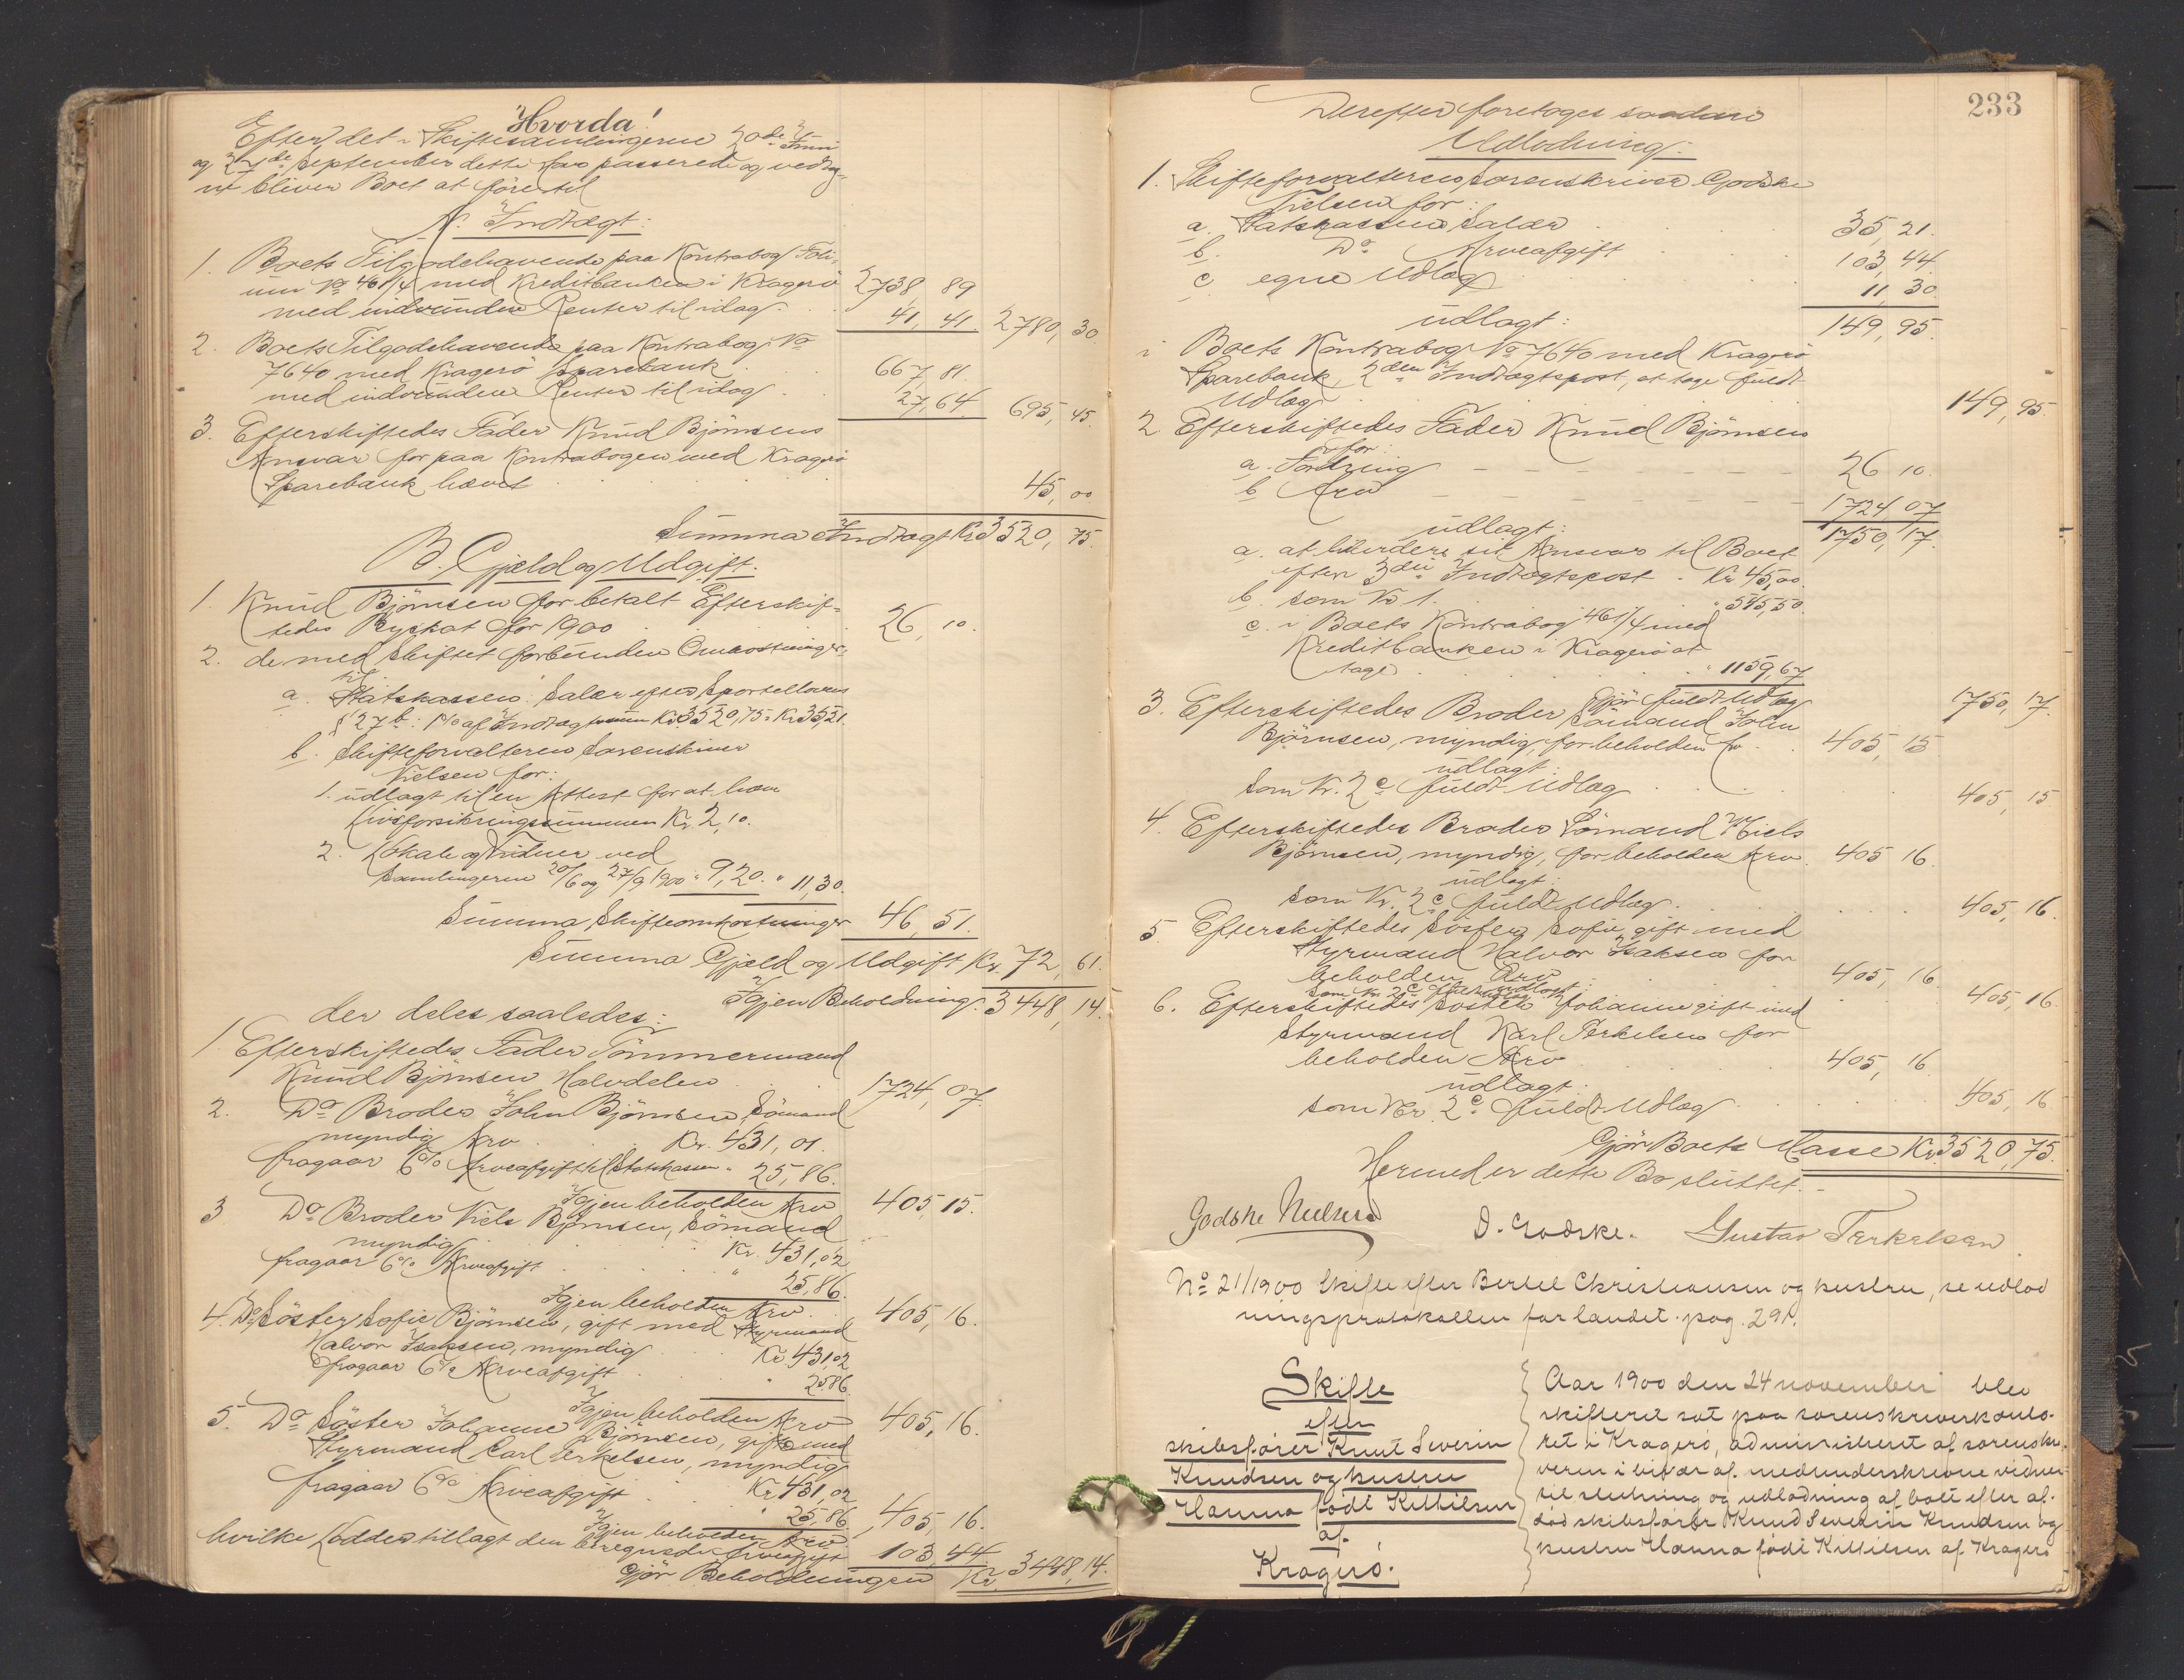 Hvorda!
Efter det i Skiftesamlingerne 20de Juni
og 27de September dette Aar passerede og vedtag-
ne bliver Boet at föres til
A. Indtægt:
1. Boets Tilgodehavende paa Kontrabog Foli-
um No 461/4 med Kreditbanken i Kragerö 2738, 89
med indvundne Renter til idag. 41, 41. 2780, 30.
2. Boets Tilgodehavende paa Kontrabog No
7640 med Kragerö Sparebank 667, 81.
med indvundne Renter til idag 27, 64. 695, 45.
3. Efterskiftedes Fader Knud Björnsens
Ansvar for paa Kontrabogen med Kragerö
Sparebank hævet 45, 00
Summa Indtægt Kr 3520, 75.
B. Gjæld og Udgift.
1. Knud Björnsen for betalt Efterskif-
tedes Byskat for 1900 26, 10.
2. de med Skiftet forbundne Omkostninger:
til:
a. Statskassen: Salær efter Sportellovens
§ 27 b: 1% af Indtægtssummen Kr 3520,75 = Kr 35,21.
b. Skifteforvalteren Sorenskriver
Nielsen for:
1. udlagt til en Attest for at hæve
Livsforsikringssummen Kr 2,10.
2. Lokale og Vidner ved
Samlingerne 20/6 og 27/9 1900 " 9,20. " 11,30.
Summa Skifteomkostninger 46, 51.
Summa Gjæld og Udgift Kr. 72, 61.
Igjen Beholdning. 3448, 14.
der deles saaledes:
1. Efterskiftedes Fader Tömmermand
Knud Björnsen Halvdelen 1724, 07.
2. Do Broder John Björnsen, Sömand
myndig Arv Kr. 431, 01.
fragaar 6% Arveafgift til Statskassen " 25, 86.
Igjen beholden Arv 405, 15.
3 Do Broder Niels Björnsen, Sömand
myndig Kr. 431,02
fragaar 6% Arveafgift " 25,86.
Igjen beholden Arv 405, 16.
4. Do Söster Sofie Björnsen, gift med Styrmand
Halvor Isaksen, myndig Kr 431,02
fragaar 6% Arveafgift " 25,86
Igjen beholden Arv 405, 16.
5. Do Söster Johanne Björnsen, gift med
Styrmand Carl Terkelsen, myndig
fragaar 6% Arveafgift Kr 431,02
" 25,86
Igjen beholden Arv 405, 16.
hvilke Lodder tillagt den beregnede Arveafgift 103, 44
Gjör Beholdningen Kr. 3448, 14.
233
Derefter foretoges saadan
Udlodning:
1. Skifteforvalteren Sorenskriver Godske
Nielsen for:
a. Statskassens Salær 35, 21.
b. Do Arveafgift 103, 44
c. egne Udlæg 11, 30.
udlagt: 149, 95.
i Boets Kontrabog No 7640 med Kragerö
Sparebank, 2den Indtægtspost, at tage fuldt
Udlæg 149, 95.
2. Efterskiftedes Fader Knud Björnsen
for:
a. Fordring 26 10.
b. Arv 1724, 07
udlagt: 1750, 17.
a. at likvidere sit Ansvar til Boet
efter 3die Indtægtspost Kr 45,00.
b. som No 1. " 545,50.
c. i Boets Kontrabog 461/4 med
Kreditbanken i Kragerö at
tage " 1159,67
Gjör fuldt Udlæg 1750, 17.
3. Efterskiftedes Broder Sömand John
Björnsen, myndig, for beholden Arv 405, 15
udlagt:
som Nr. 2 c fuldt Udlæg 405, 15
4. Efterskiftedes Broder Sömand Niels
Björnsen, myndig, for beholden Arv 405 16.
udlagt:
som Nr. 2 c fuldt Udlæg. 405, 16.
5. Efterskiftedes Söster Sofie gift med
Styrmand Halvor Isaksen for
beholden Arv 405, 16.
udlagt:
som Nr. 2 c fuldt Udlæg 405, 16.
6. Efterskiftedes Söster Johanne gift med
Styrmand Karl Terkelsen for
beholden Arv 405, 16
udlagt:
som Nr. 2 c. fuldt Udlæg 405, 16
Gjör Boets Masse Kr 3520,75.
Hermed er dette Bo sluttet.
Godske Nielsen D. Godske. Gustav Terkelsen.
No 21/1900 Skifte efter Bertel Christiansen og hustru, se udlod
ningsprotokollen for landet pag. 291.
Skifte
efter
skibsfører Knut Severin
Knudsen og hustru
Hanna født Kittilsen
af
Kragerö.
Aar 1900 den 24 november blev
skifteret sat paa sorenskriverkonto-
ret i Kragerö, administreret af sorenskri-
veren i bivær af medunderskrevne vidner
til slutning og udlodning af boet efter af-
död skibsförer Knud Severin Knudsen og
hustru Hanna födt Kittilsen af Kragerö